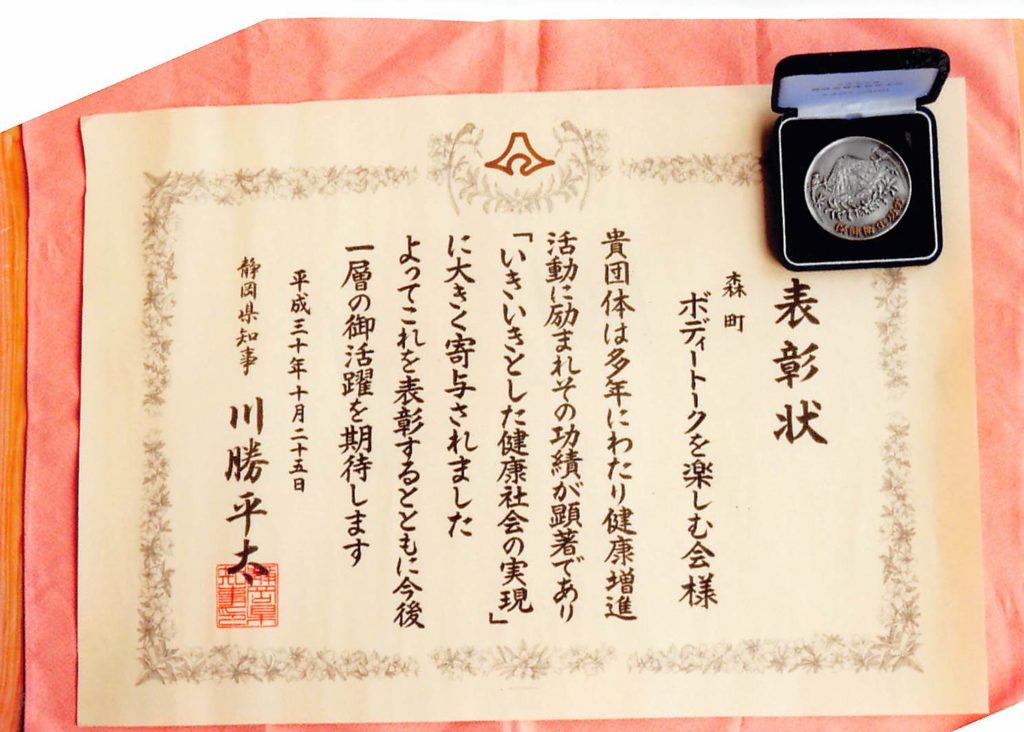 表彰状
森町
ボディートークを楽しむ会 様
貴団体は多年にわたり健康増進
活動に励まれその功績が顕著であり
「いきいきとした健康社会の実現」
に大きく寄与されました
よってこれを表彰するとともに今後
一層の御活躍を期待します
平成三十年十月二十五日
静岡県知事 川勝平太